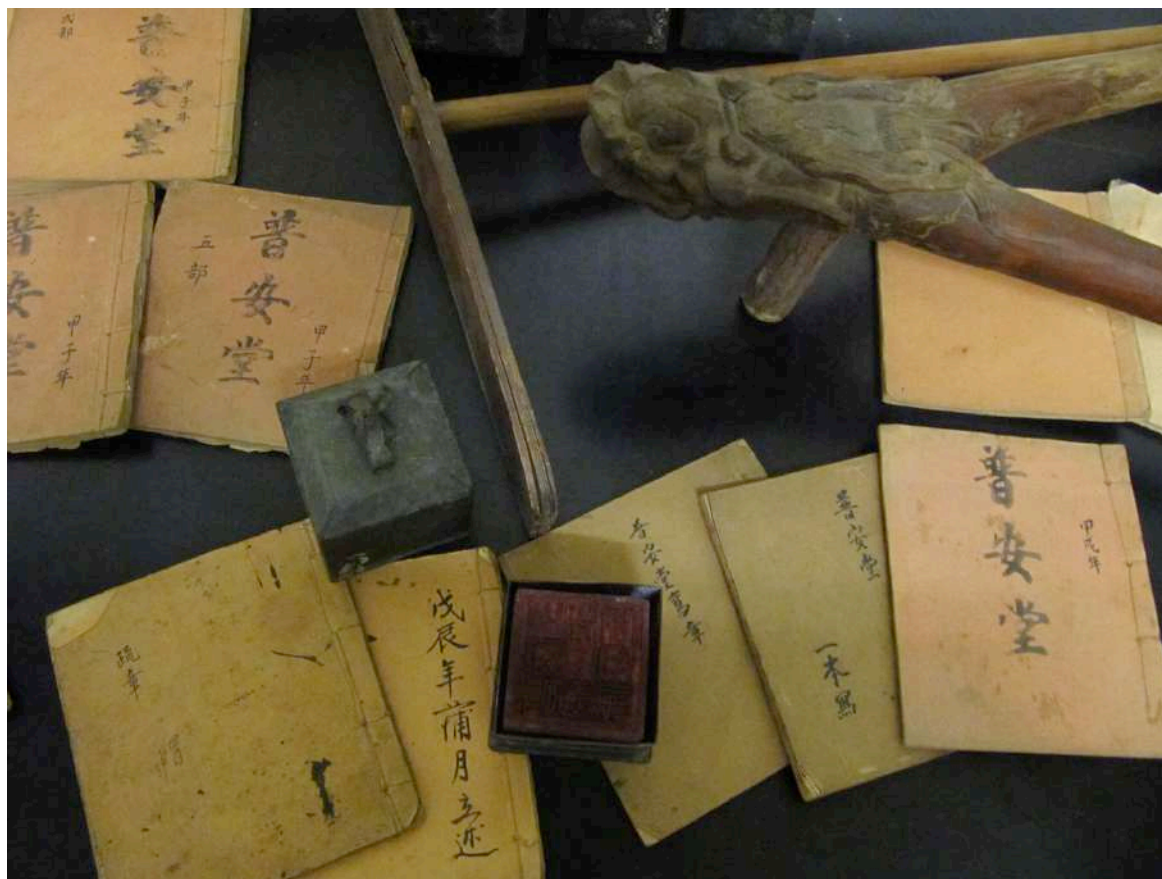 弍部
普安堂
甲子年
普安堂
甲子年
五部
普安堂
甲子年
疏章
戊辰年蒲月立述
普安堂
一本
普安堂